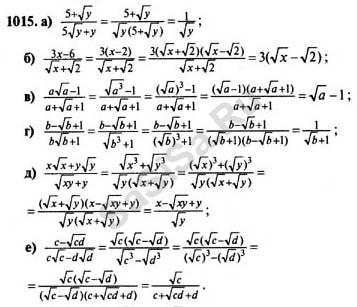 1015. а) (5+√y)/(5√y+y) = (5+√y)/(√y(5+√y)) = 1/√y ;
б) (3x−6)/(√x+√2) = 3(x−2)/(√x+√2) = 3(√x+√2)(√x−√2)/(√x+√2) = 3(√x−√2) ;
в) (a√a−1)/(a+√a+1) = (√a³−1)/(a+√a+1) = ((√a)³−1)/(a+√a+1) = (√a−1)(a+√a+1)/(a+√a+1) = √a−1 ;
г) (b−√b+1)/(b√b+1) = (b−√b+1)/(√b³+1) = (b−√b+1)/((√b)³+1) = (b−√b+1)/((√b+1)(b−√b+1)) = 1/(√b+1) ;
д) (x√x+y√y)/(√xy+y) = (√x³+√y³)/(√y(√x+√y)) = ((√x)³+(√y)³)/(√y(√x+√y)) =
= (√x+√y)(x−√xy+y)/(√y(√x+√y)) = (x−√xy+y)/√y ;
е) (c−√cd)/(c√c−d√d) = √c(√c−√d)/(√c³−√d³) = √c(√c−√d)/((√c)³−(√d)³) =
= √c(√c−√d)/((√c−√d)(c+√cd+d)) = √c/(c+√cd+d) .